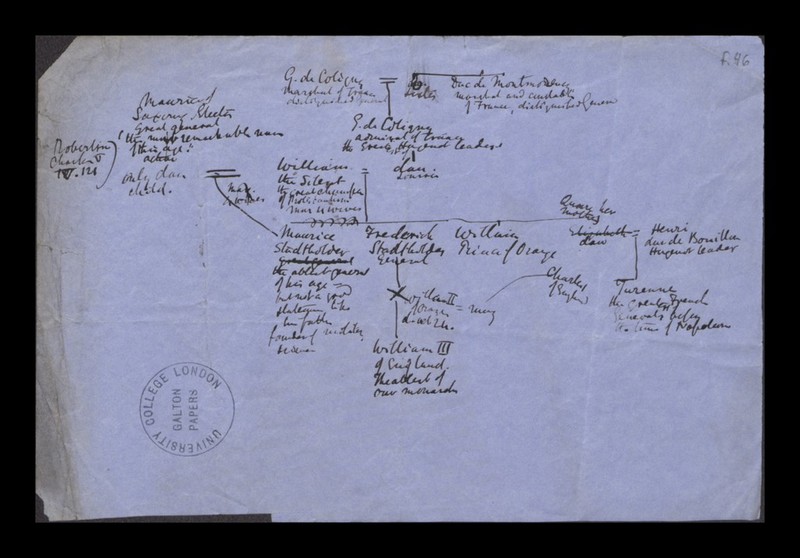 f.46
G. de Coligny
Marshal of France
distinguished general
=
Sister
Duc de Montmorency
marshal and constable
of France, distinguished General
G. de Coligny
admiral of France
the Great Huguenot leader
dau.
Louisa
Maurice of
Saxony, Elector
Great general
"the most remarkable man
of this age."
Robertson
Charles V
IV. 121
only dau
child.
=
mar.
4 wives
William
the Silent
the great champion
of Protestantism
mar 4 wives
=
Maurice
Stadtholder
Great general
the ablest general
of his age
but not a good
statesman like
his father
founder of military
science
Frederick
Stadtholder
General
William
Prince of Orange
mother
Elizabeth =
dau
Henri
duc de Bouillon
Hugenot leader
Turenne
the greatest French
General before
the time of Napoleon
Charles
of England
William II
of Orange
died 24.
= mary
William III
of England.
The ablest of
our monarchs
UNIVERSITY COLLEGE LONDON
GALTON
PAPERS